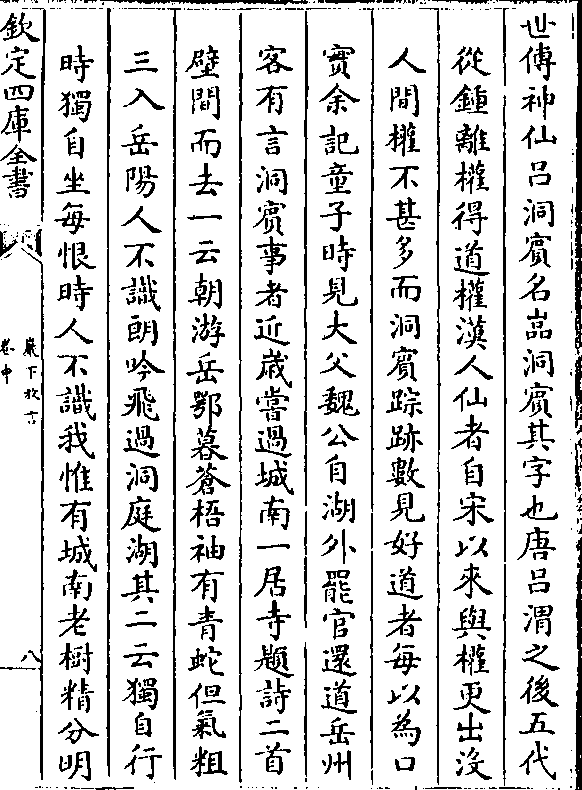 世傳神仙呂洞賔名嵓洞賔其字也唐呂渭之後五代
從鍾離權得道權漢人仙者自宋以來與權更出沒
人間權不甚多而洞賔踪跡數見好道者每以為口
實余記童子時見大父魏公自湖外罷官還道岳州
客有言洞賔事者近歲嘗過城南一居寺題詩二首
壁間而去一云朝游岳鄂暮蒼梧袖有青蛇但氣粗
三入岳陽人不識朗吟飛過洞庭湖其二云獨自行
時獨自坐每恨時人不識我惟有城南老樹精分明
欽定四庫全書
巖下放言
卷中
八